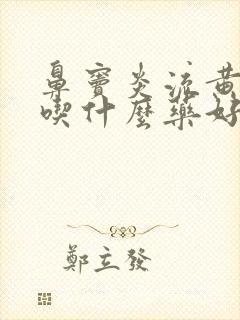 鼻竇炎流黃
喫什麼藥好
鄭立發